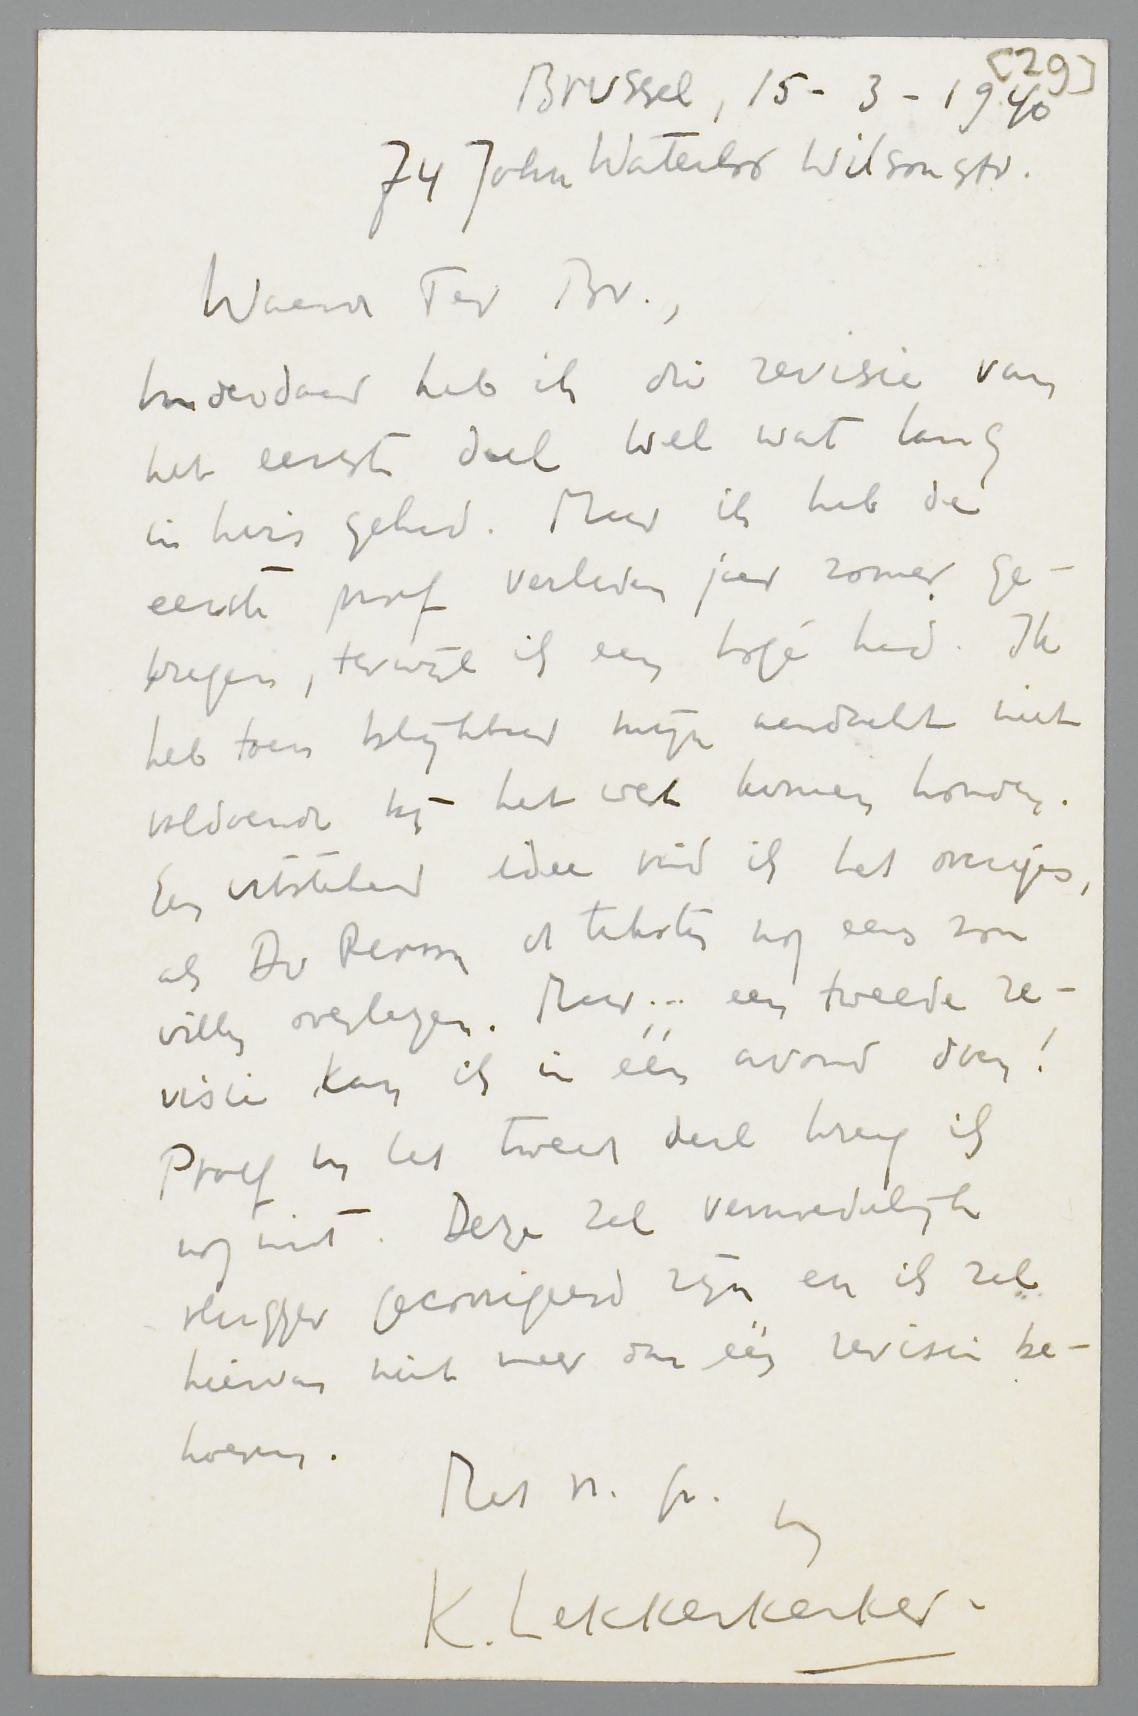 [29]
Brussel, 15-3-1940
74 John Waterloo Wilsonstr.
Waarde Ter Br.,
Inderdaad heb ik die revisie van
het eerste deel wel wat lang
in huis gehad. Maar ik heb de
eerste proef verleden jaar zomer ge-
kregen, terwijl ik een logé had. Ik
heb toen blijkbaar mijn aandacht niet
voldoende bij het werk kunnen houden.
Een uitstekend idee vind ik het overigens,
als Du Perron de teksten nog eens zou
willen overlezen. Maar... een tweede re-
visie kan ik in één avond doen!
Proef van het tweede deel kreeg ik
nog niet. Deze zal vermoedelijk
vlugger gecorrigeerd zijn en ik zal
hiervan niet meer dan één revisie be-
hoeven.
Met vr. gr.
K. Lekkerkerker